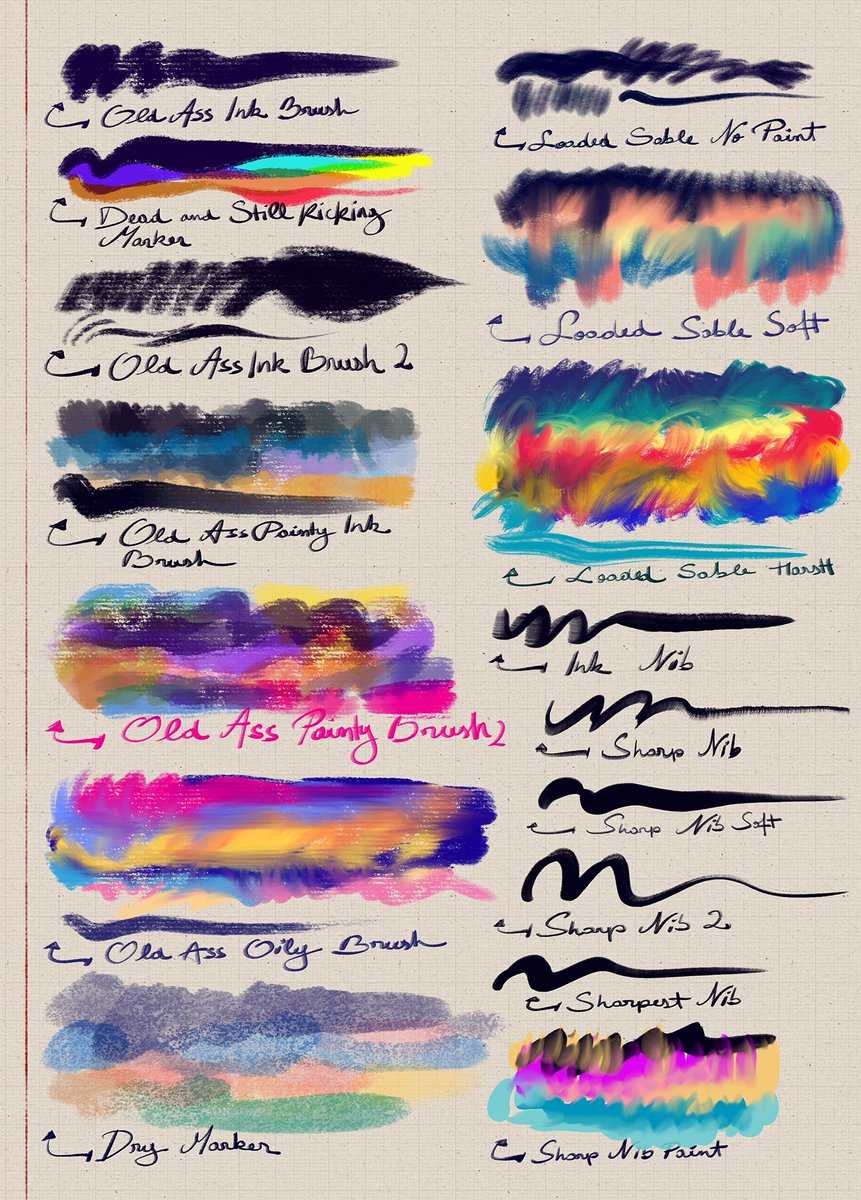 Old Ass Ink Brush
Dead and Still Kicking
Marker
Old Ass Ink Brush 2
Old Ass Painty Ink
Brush
Old Ass Painty Brush 2
Old Ass Oily Brush
Dry Marker
Loaded Sable No Paint
Loaded Sable Soft
Loaded Sable Harsh
Ink Nib
Sharp Nib
Sharp Nib Soft
Sharp Nib 2
Sharpest Nib
Sharp Nib Paint